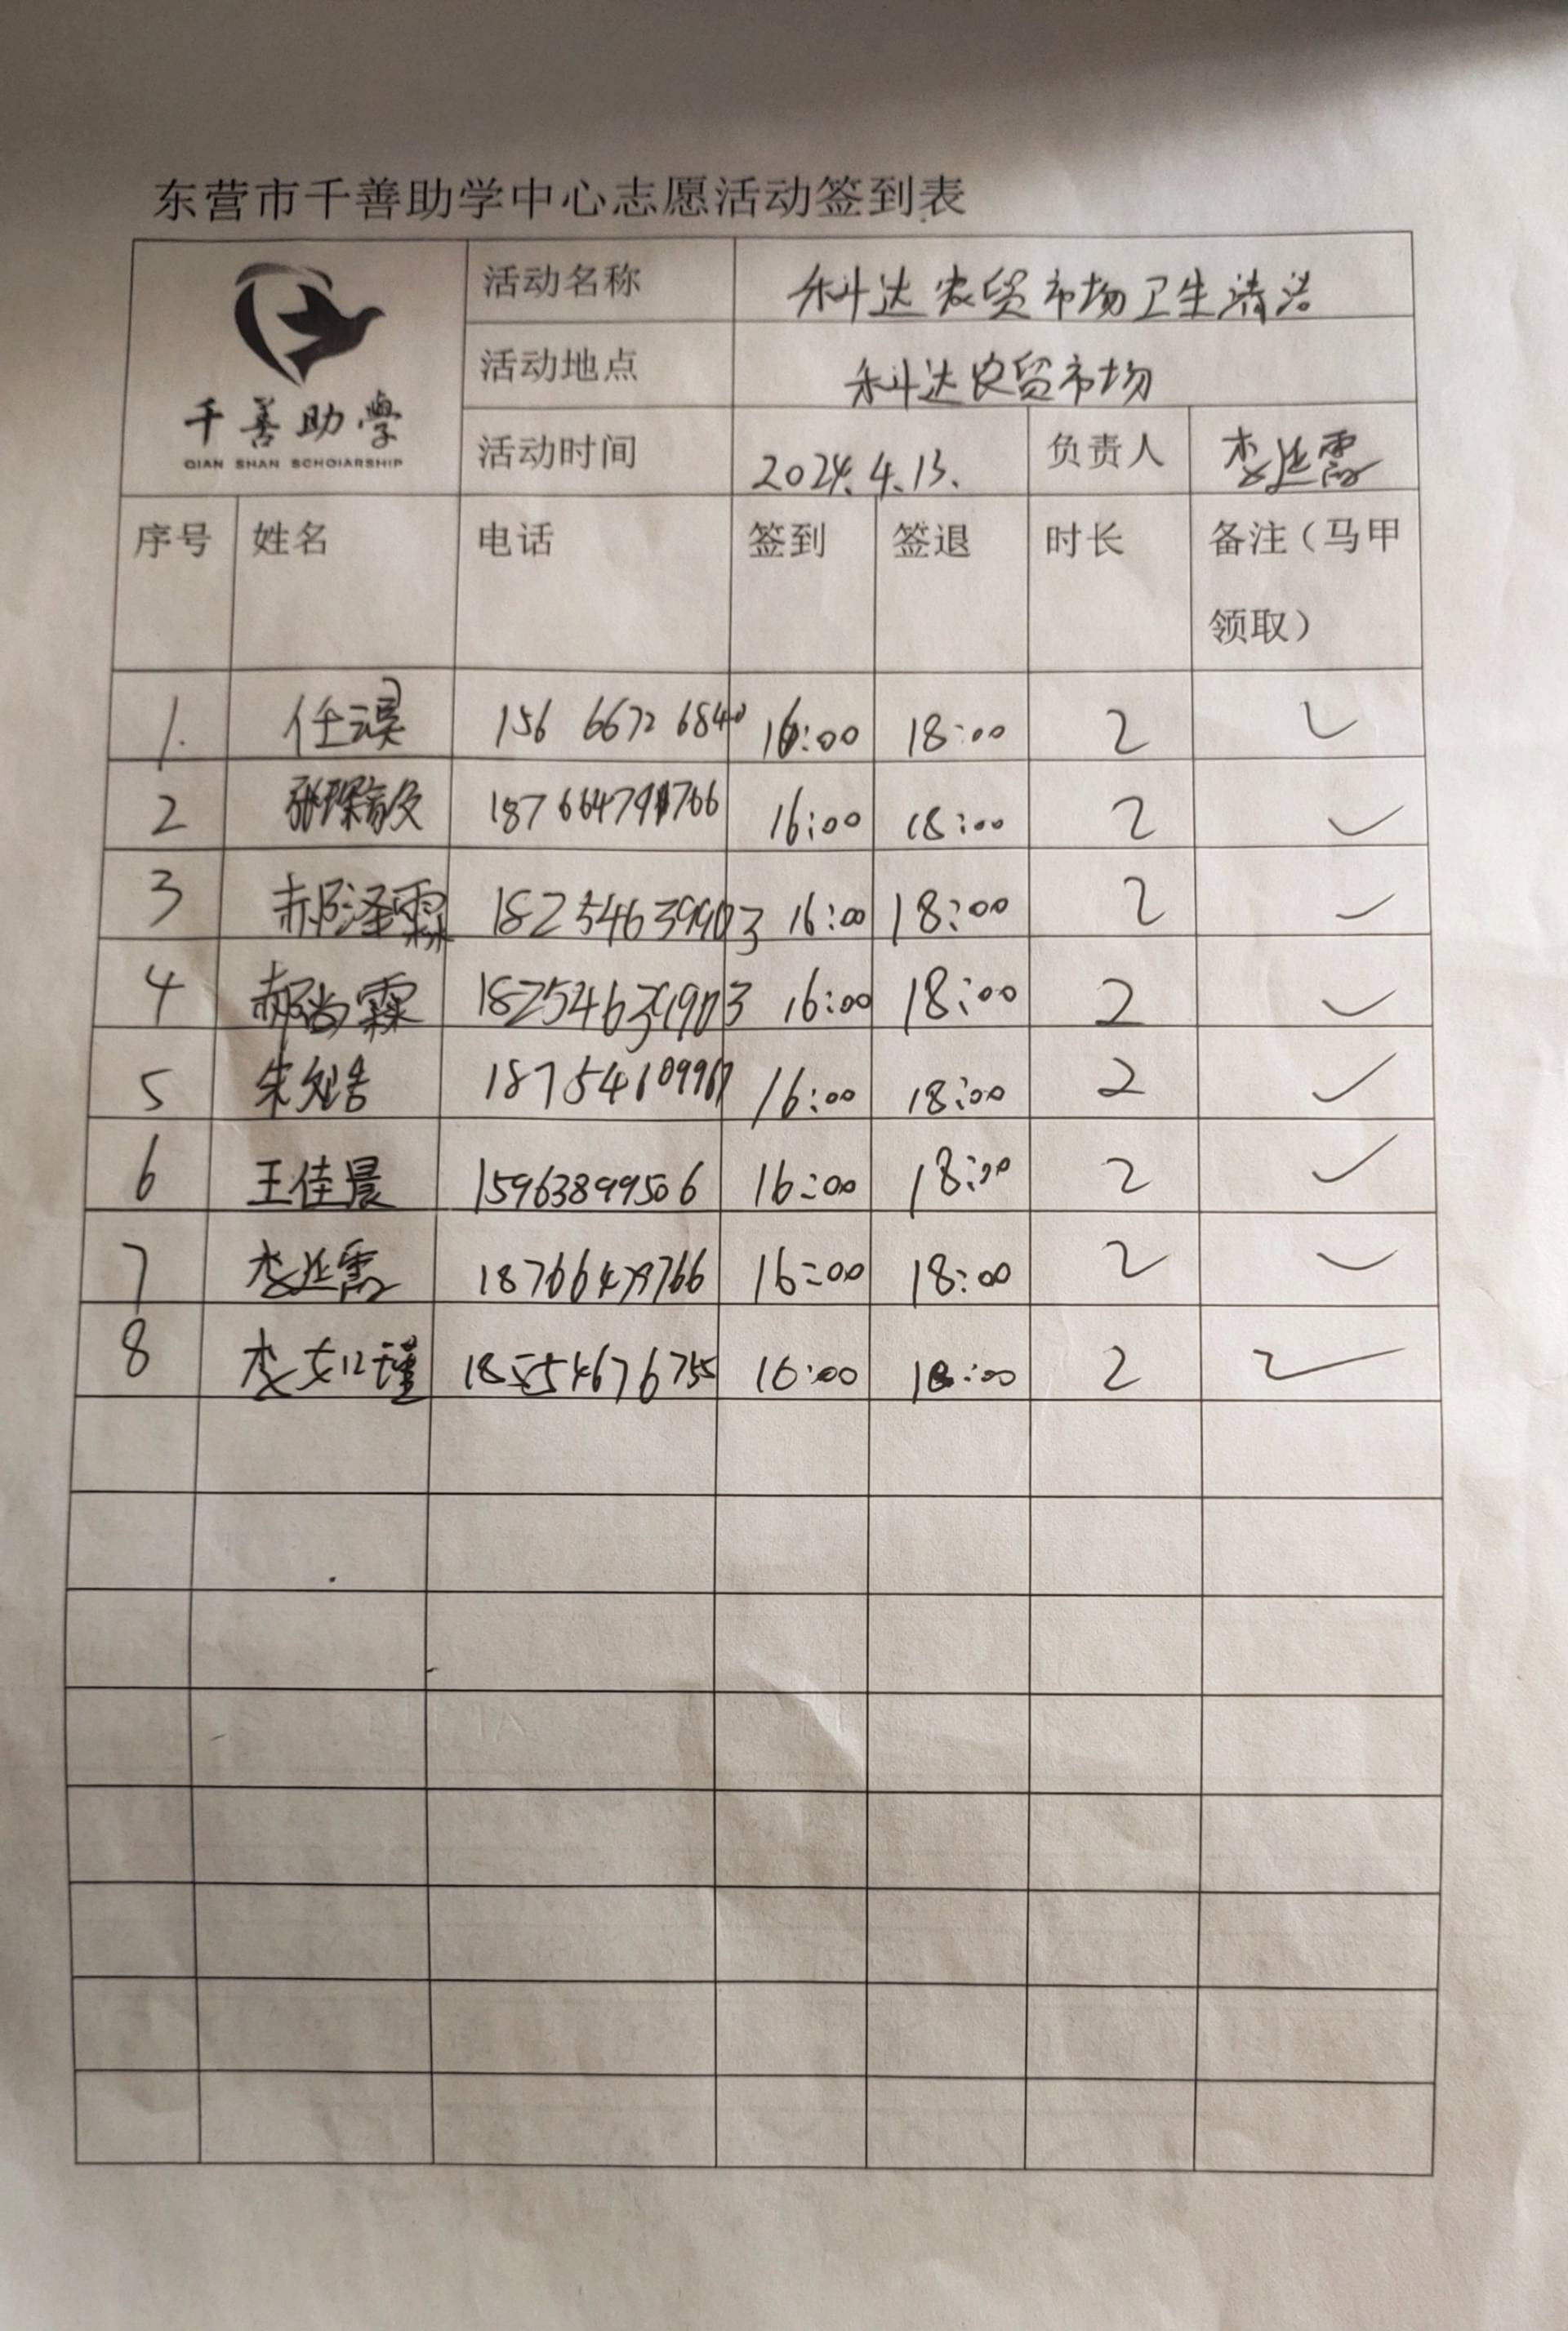 东营市千善助学中心志愿活动签到表
千善助學
QIAN SHAN SCHOLARSHIP
活动名称 科达农贸市场卫生清洁
活动地点 科达农贸市场
活动时间 2024.4.13. 负责人 李延霞
序号 姓名 电话 签到 签退 时长 备注（马甲领取）
1. 任淏 156 6672 6840 16:00 18:00 2 ✓
2 18766479766 16:00 18:00 2 ✓
3 郝泽霖 18254639903 16:00 18:00 2 ✓
4 郝尚霖 18254639903 16:00 18:00 2 ✓
5 18754609967 16:00 18:00 2 ✓
6 王佳晨 15963899506 16:00 18:00 2 ✓
7 李延霞 18766479766 16:00 18:00 2 ✓
8 李如瑾 18554676755 16:00 18:00 2 ✓